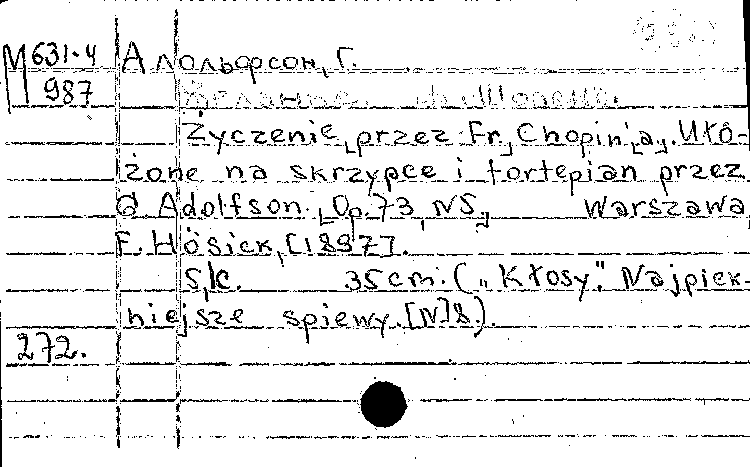 М 631-4 Адольфсон, Г.
987 Желание. Ф. Шопена.
Życzenie [przez Fr.] Chopin[a]. Uło-
żone na skrzypce i fortepian przez
G Adolfson. [Op. 73, N5] Warszawa,
F. Hösick, [1897].
5, [c. 35cm. („Kłosy." Najpięk-
niejsze spiewy. [N] 8.).
272.